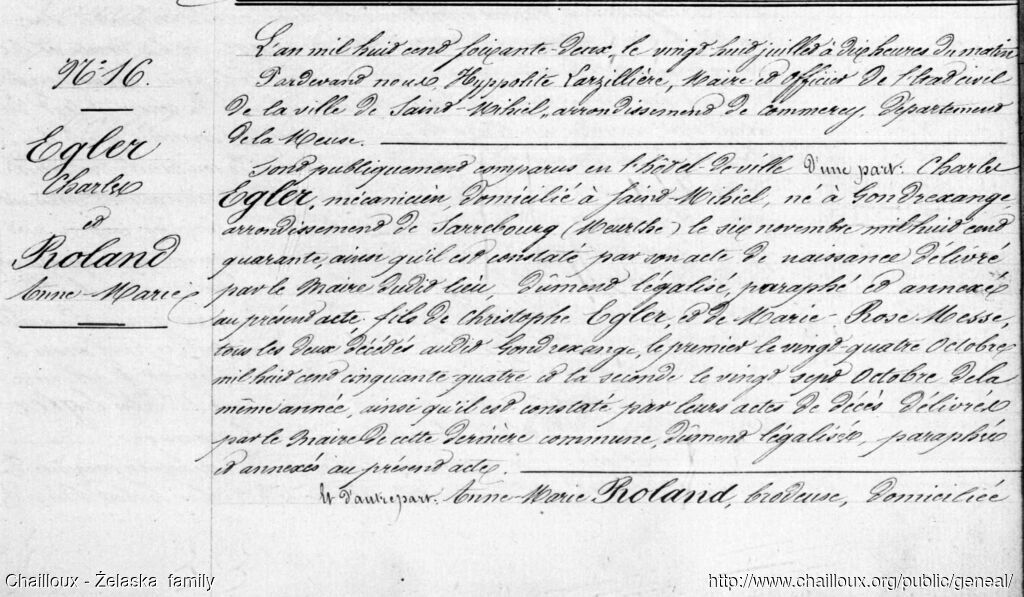 N° 16.
Egler
Charles
et
Roland
Anne-Marie
L'an mil huit cent soixante-deux, le vingt huit juillet à dix heures du matin
Pardevant nous, Hyppolite Larzillière, Maire et Officier de l'Etat civil
de la ville de Saint-Mihiel, arrondissement de Commercy, département
de la Meuse.
Sont publiquement comparus en l'hôtel-de-ville D'une part. Charles
Egler, mécanicien, domicilié à Saint-Mihiel, né à Gondrexange,
arrondissement de Sarrebourg (Meurthe) le six novembre mil huit cent
quarante, ainsi qu'il est constaté par son acte de naissance délivré
par le Maire dudit lieu, dûment légalisé, paraphé et annexé
au présent acte, fils de Christophe Egler, et de Marie-Rose Messe,
tous les deux décédés audit Gondrexange, le premier le vingt-quatre Octobre
mil huit cent cinquante-quatre et la seconde le vingt sept Octobre de la
même année, ainsi qu'il est constaté par leurs actes de décès délivrés
par le Maire de cette dernière commune, dûment légalisés, paraphés
et annexés au présent acte.
Et d'autre part. Anne-Marie Roland, brodeuse, domiciliée
Chailloux - Żelaska family
http://www.chailloux.org/public/geneal/